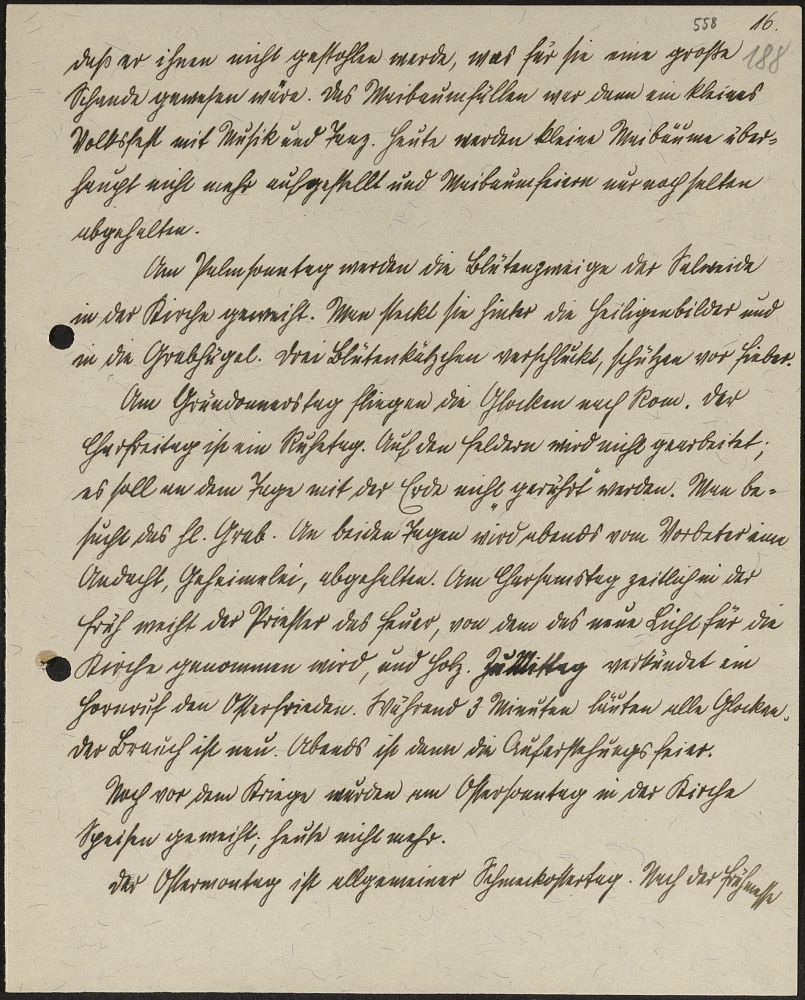 558 16.
188
daß er ihnen nicht gestohlen werde, was für sie eine große
Schande gewesen wäre. Das Maibaumfällen war dann ein kleines
Volksfest mit Musik und Tanz. Heute werden kleine Maibäume über=
haupt nicht mehr aufgestellt und Maibaumfeiern nur noch selten
abgehalten.
Am Palmsonntag werden die Blütenzweige der Salweide
in der Kirche geweiht. Man steckt sie hinter die Heiligenbilder und
in die Grabhügel. Drei Blütenkätzchen verschluckt, schützen vor Fieber.
Am Gründonnerstag fliegen die Glocken nach Rom. Der
Charfreitag ist ein Ruhetag. Auf den Feldern wird nicht gearbeitet;
es soll an dem Tage mit der Erde nicht „gerührt" werden. Man be=
sucht das hl. Grab. An beiden Tagen wird abends vom Vorbeter eine
Andacht, abgehalten. Am Charsamstag zeitlich in der
Früh weiht der Priester das Feuer, von dem das neue Licht für die
Kirche genommen wird, und Holz. Zu Mittag verkündet ein
Hornruf den Osterfrieden. Während 3 Minuten läuten alle Glocken.
Der Brauch ist neu. Abends ist dann die Auferstehungsfeier.
Noch vor dem Kriege wurden am Ostersonntag in der Kirche
Speisen geweiht; heute nicht mehr.
Der Ostermontag ist allgemeiner Schmeckostertag. Nach der Frühmesse